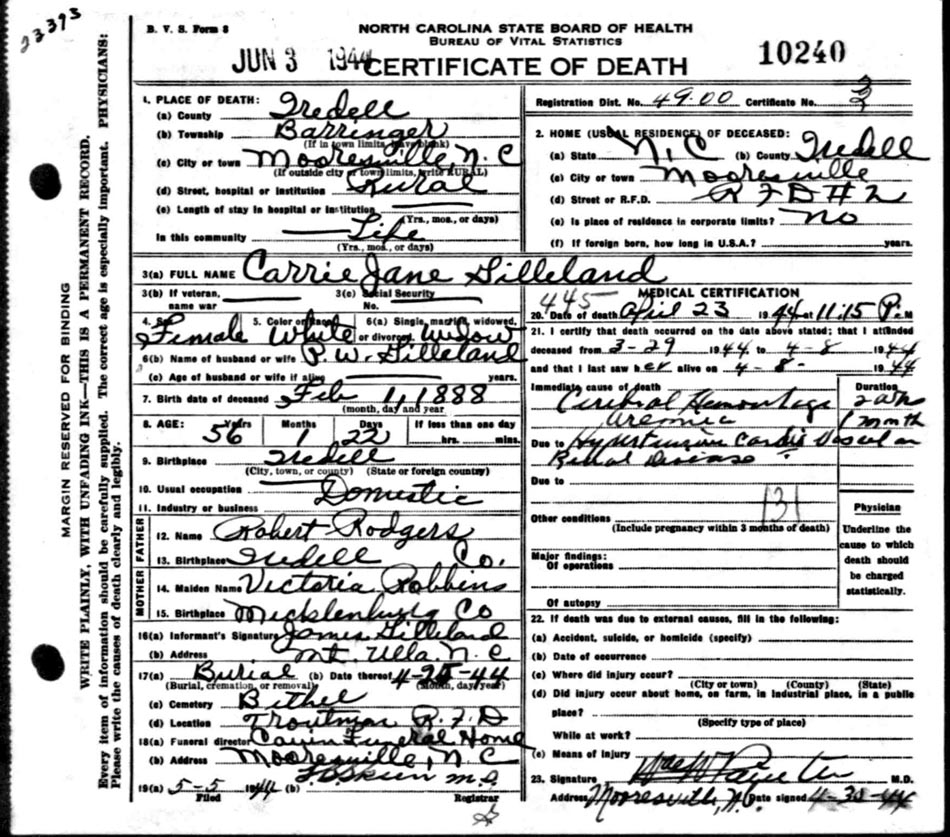 23393
B. V. S. Form 8
NORTH CAROLINA STATE BOARD OF HEALTH
BUREAU OF VITAL STATISTICS
JUN 3 1944
CERTIFICATE OF DEATH
10240
MARGIN RESERVED FOR BINDING
WRITE PLAINLY, WITH UNFADING INK—THIS IS A PERMANENT RECORD.
Every item of information should be carefully supplied. The correct age is especially important. PHYSICIANS:
Please write the causes of death clearly and legibly.
1. PLACE OF DEATH:
(a) County Iredell
(b) Township Barringer
(If in town limits, leave blank)
(c) City or town Mooresville, N. C
(If outside city or town limits, write RURAL)
(d) Street, hospital or institution Rural
(e) Length of stay in hospital or institution
(Yrs., mos., or days)
In this community Life
(Yrs., mos., or days)
Registration Dist. No. 49.00 Certificate No.
2. HOME (USUAL RESIDENCE) OF DECEASED:
(a) State N. C (b) County Iredell
(c) City or town Mooresville
(d) Street or R.F.D. R F D # 2
(e) Is place of residence in corporate limits? No
(f) If foreign born, how long in U.S.A.? years.
3(a) FULL NAME Carrie Jane Gilleland
3(b) If veteran, name war 3(c) Social Security No.
4. Sex Female 5. Color or race White 6(a) Single, married, widowed, or divorced Widow
6(b) Name of husband or wife P. W. Gilleland
(c) Age of husband or wife if alive years.
7. Birth date of deceased Feb 1, 1888
(month, day and year
8. AGE: Years 56 Months 1 Days 22 If less than one day hrs. mins.
9. Birthplace Iredell
(City, town, or county) (State or foreign country)
10. Usual occupation Domestic
11. Industry or business
FATHER
12. Name Robert Rodgers
13. Birthplace Iredell Co.
MOTHER
14. Maiden Name Victoria Robbins
15. Birthplace Mecklenburg Co
16(a) Informant's Signature James Gilleland
(b) Address Mt. Ulla, N. C
17(a) Burial (b) Date thereof 4-25-44
(Burial, cremation, or removal) (Month, day, year)
(c) Cemetery Bethel
(d) Location Troutman R. F. D
18(a) Funeral director Cavin Funeral Home
(b) Address Mooresville, N. C
19(a) 5-5 1944 (b) M.D.
Filed Registrar
445 MEDICAL CERTIFICATION
20. Date of death April 23 1944 at 11:15 P. M
21. I certify that death occurred on the date above stated; that I attended
deceased from 3-29 1944 to 4-8 1944
and that I last saw her alive on 4-8- 1944
Immediate cause of death Duration
Cerebral Hemorrhage
Uremia 1 month
Due to Hypertensive Cardio Vascular
Renal Disease
Due to
131
Other conditions
(Include pregnancy within 3 months of death)
Major findings:
Of operations
Of autopsy
Physician
Underline the
cause to which
death should
be charged
statistically.
22. If death was due to external causes, fill in the following:
(a) Accident, suicide, or homicide (specify)
(b) Date of occurrence
(c) Where did injury occur?
(City or town) (County) (State)
(d) Did injury occur about home, on farm, in industrial place, in a public
place?
(Specify type of place)
While at work?
(e) Means of injury
23. Signature M.D.
Address Mooresville, N.C. Date signed 4-30-44